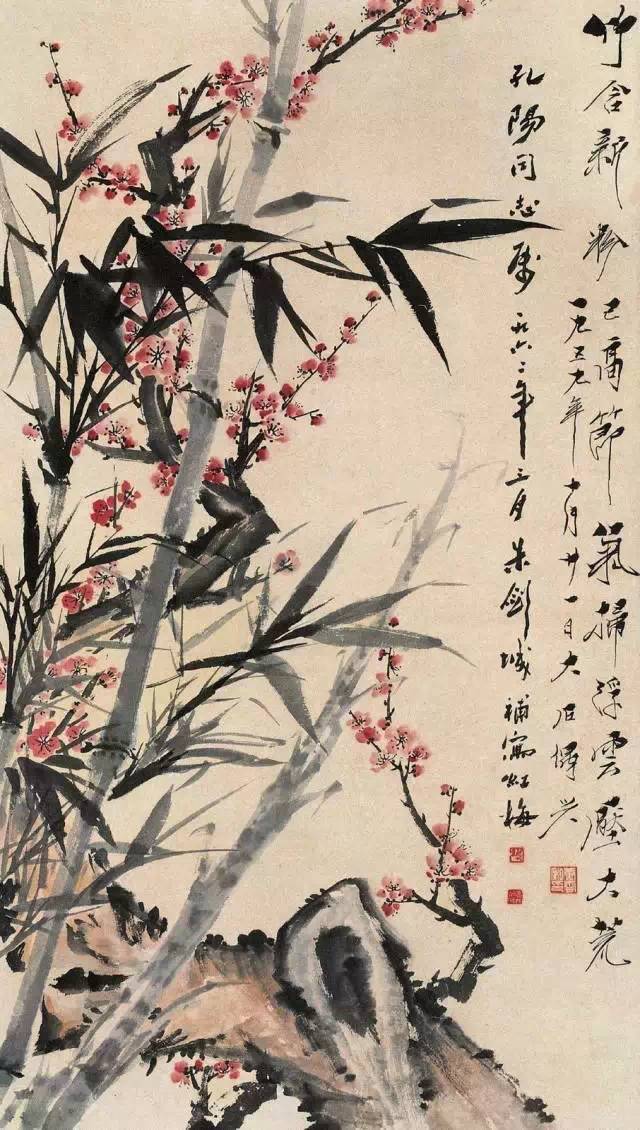 竹含新粉已高節氣掃浮雲壓大荒
一九五九年十月廿一日大石
孔陽同志屬一九六二年三月朱劍城補寫紅梅